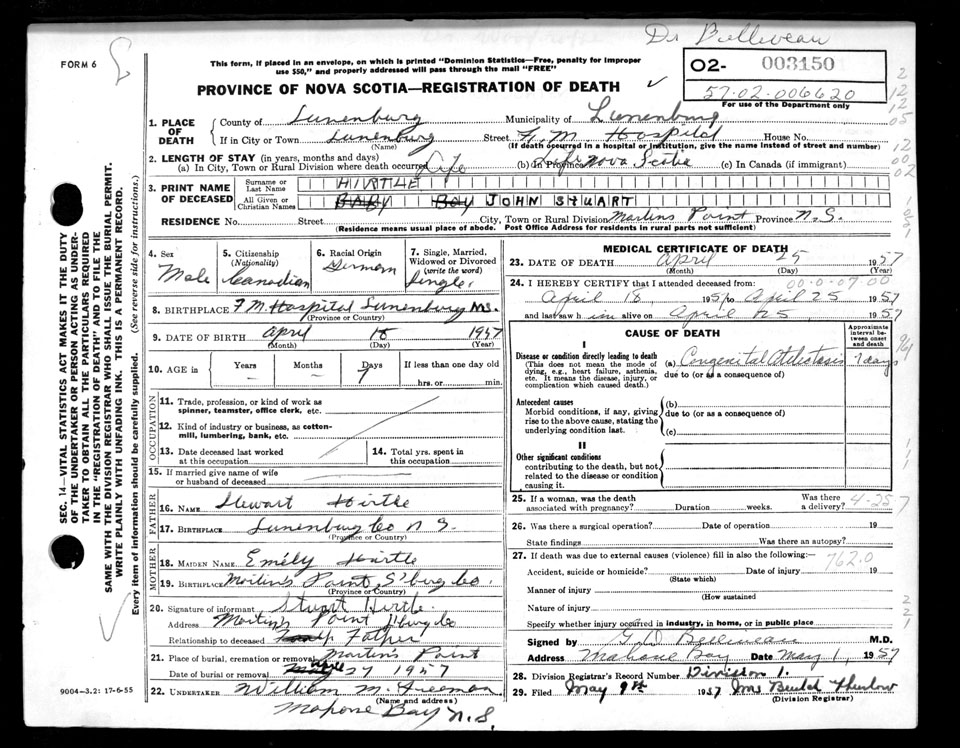 Dr Belliveau
FORM 6
This form, if placed in an envelope, on which is printed "Dominion Statistics—Free, penalty for improper
use $50," and properly addressed will pass through the mail "FREE"
O2- 003150
57-02-006620
For use of the Department only
PROVINCE OF NOVA SCOTIA—REGISTRATION OF DEATH
1. PLACE OF DEATH
County of Lunenburg Municipality of Lunenburg
If in City or Town Lunenburg Street F. M. Hospital House No.
(Name) (If death occurred in a hospital or institution, give the name instead of street and number)
2. LENGTH OF STAY (in years, months and days)
(a) In City, Town or Rural Division where death occurred Life (b) In Province Nova Scotia (c) In Canada (if immigrant)
3. PRINT NAME OF DECEASED
Surname or Last Name HIRTLE
All Given or Christian Names BABY BOY JOHN STUART
RESIDENCE No. Street City, Town or Rural Division Martins Point Province N.S.
(Residence means usual place of abode. Post Office Address for residents in rural parts not sufficient)
4. Sex Male
5. Citizenship (Nationality) Canadian
6. Racial Origin German
7. Single, Married, Widowed or Divorced (write the word) Single
8. BIRTHPLACE F.M. Hospital Lunenburg N.S.
(Province or Country)
9. DATE OF BIRTH April 18 1957
(Month) (Day) (Year)
10. AGE in Years – Months – Days 7 If less than one day old
hrs. or min.
OCCUPATION
11. Trade, profession, or kind of work as spinner, teamster, office clerk, etc.
12. Kind of industry or business, as cotton-mill, lumbering, bank, etc.
13. Date deceased last worked at this occupation
14. Total yrs. spent in this occupation
15. If married give name of wife or husband of deceased
FATHER
16. NAME Stewart Hirtle
17. BIRTHPLACE Lunenburg Co N.S.
(Province or Country)
MOTHER
18. MAIDEN NAME Emily Hirtle
19. BIRTHPLACE Martin's Point L'burg Co.
(Province or Country)
20. Signature of informant Stuart Hirtle.
Address Martin's Point L'burg Co
Relationship to deceased Father
21. Place of burial, cremation or removal Martin's Point
Date of burial or removal 27 1957
22. UNDERTAKER William M. Freeman
(Name and address)
Mahone Bay N.S.
9004—3.2: 17-6-55
MEDICAL CERTIFICATE OF DEATH
23. DATE OF DEATH April 25 1957
(Month) (Day) (Year)
24. I HEREBY CERTIFY that I attended deceased from: 00-0-07-00
April 18, 1957 to April 25 1957
and last saw him alive on April 25, 1957
CAUSE OF DEATH
Approximate interval between onset and death
I
Disease or condition directly leading to death
(This does not mean the mode of dying, e.g., heart failure, asthenia, etc. It means the disease, injury, or complication which caused death.)
(a) Congenital Atelectasis 7 days
due to (or as a consequence of)
Antecedent causes
Morbid conditions, if any, giving rise to the above cause, stating the underlying condition last.
(b)
due to (or as a consequence of)
(c)
II
Other significant conditions
contributing to the death, but not related to the disease or condition causing it.
25. If a woman, was the death associated with pregnancy? Duration weeks. Was there a delivery? 4-25 7
26. Was there a surgical operation? Date of operation 19
State findings Was there an autopsy?
27. If death was due to external causes (violence) fill in also the following:—
762.0
Accident, suicide or homicide? Date of injury 19
(State which)
Manner of injury
(How sustained)
Nature of injury
Specify whether injury occurred in industry, in home, or in public place
Signed by G. D. Belliveau M.D.
Address Mahone Bay Date May 1, 1957
28. Division Registrar's Record Number Division 1.
29. Filed May 9th 1957 Mrs
(Division Registrar)
SEC. 14—VITAL STATISTICS ACT MAKES IT THE DUTY
OF THE UNDERTAKER OR PERSON ACTING AS UNDER-
TAKER TO OBTAIN ALL THE PARTICULARS REQUIRED
IN THE "REGISTRATION OF DEATH" AND TO FILE THE
SAME WITH THE DIVISION REGISTRAR WHO SHALL ISSUE THE BURIAL PERMIT.
WRITE PLAINLY WITH UNFADING INK. THIS IS A PERMANENT RECORD.
Every item of information should be carefully supplied. (See reverse side for instructions.)